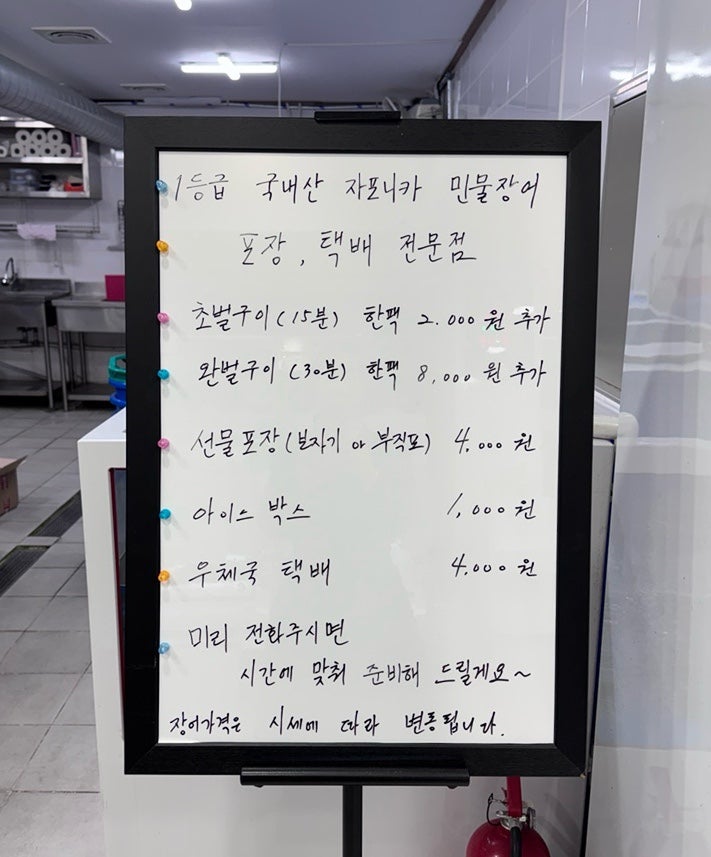 1등급 국내산 자포니카 민물장어
포장, 택배 전문점
초벌구이(15분) 한팩 2.000원 추가
완벌구이(30분) 한팩 8,000원 추가
선물포장(보자기 or 부직포) 4,000원
아이스 박스 1,000원
우체국 택배 4,000원
미리 전화주시면
시간에 맞춰 준비해 드릴게요~
장어가격은 시세에 따라 변동됩니다.